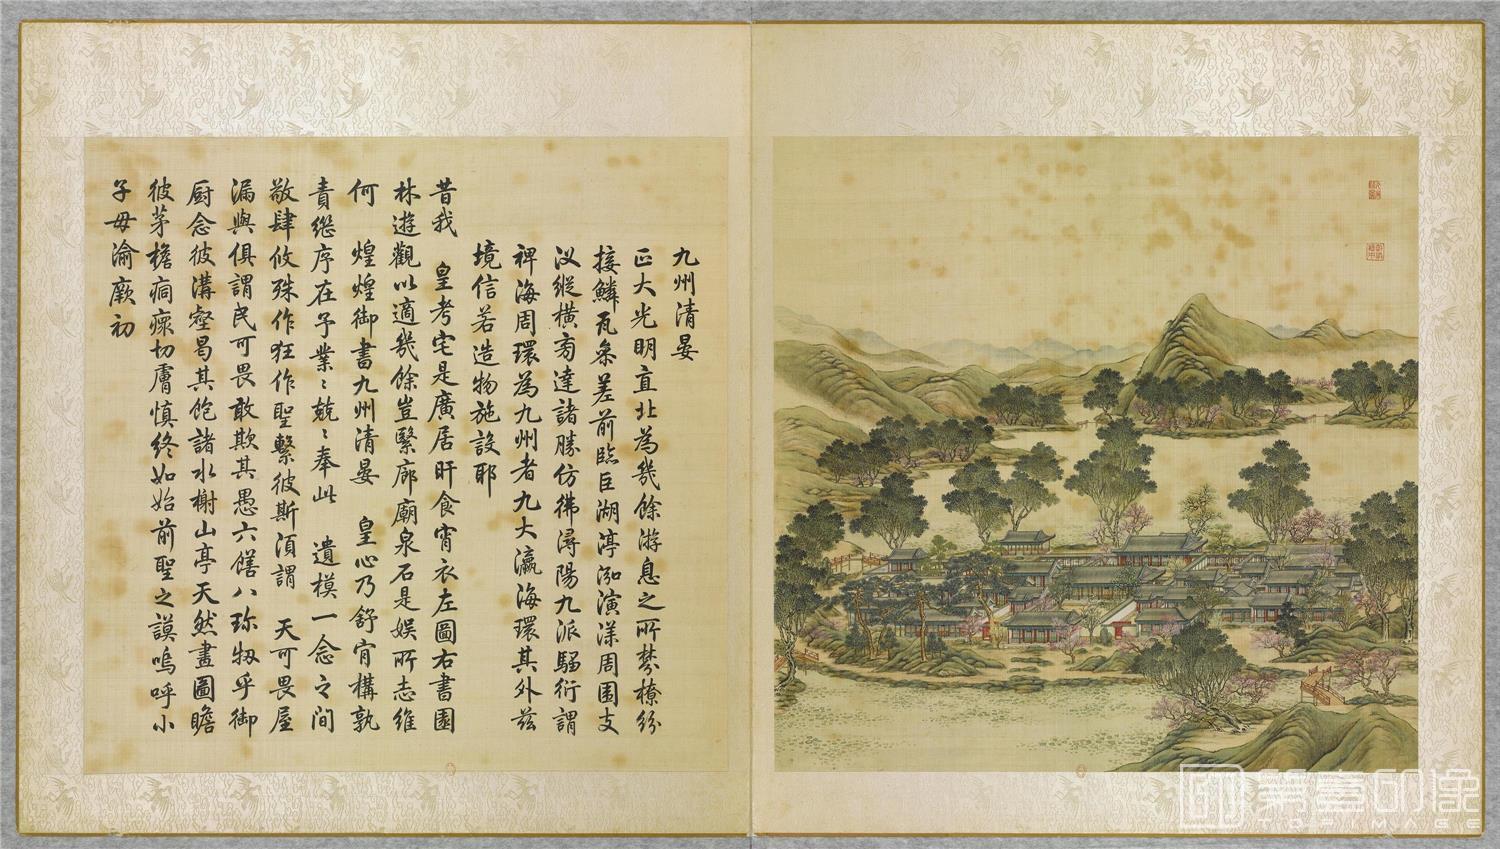 九州清晏
正大光明直北為幾餘游息之所棼橑紛
接鱗瓦叅差前臨巨湖渟泓演漾周圍支
汊縱橫旁達諸勝仿彿潯陽九派騶衍謂
裨海周環為九州者九大瀛海環其外兹
境信若造物施設耶
昔我 皇考宅是廣居旰食宵衣左圖右書園
林遊觀以適幾餘豈繄廊廟泉石是娱所志維
何 煌煌御書九州清晏 皇心乃舒肯構孰
責繼序在予業〻兢〻奉此 遺模一念之間
敬肆攸殊作狂作聖繫彼斯須謂 天可畏屋
漏與俱謂民可畏敢欺其愚六饍八珍牣乎御
厨念彼溝壑曷其飽諸水榭山亭天然畫圖瞻
彼茅檐痌瘝切膚慎終如始前聖之謨嗚呼小
子毋渝厥初
TOPIMAGE